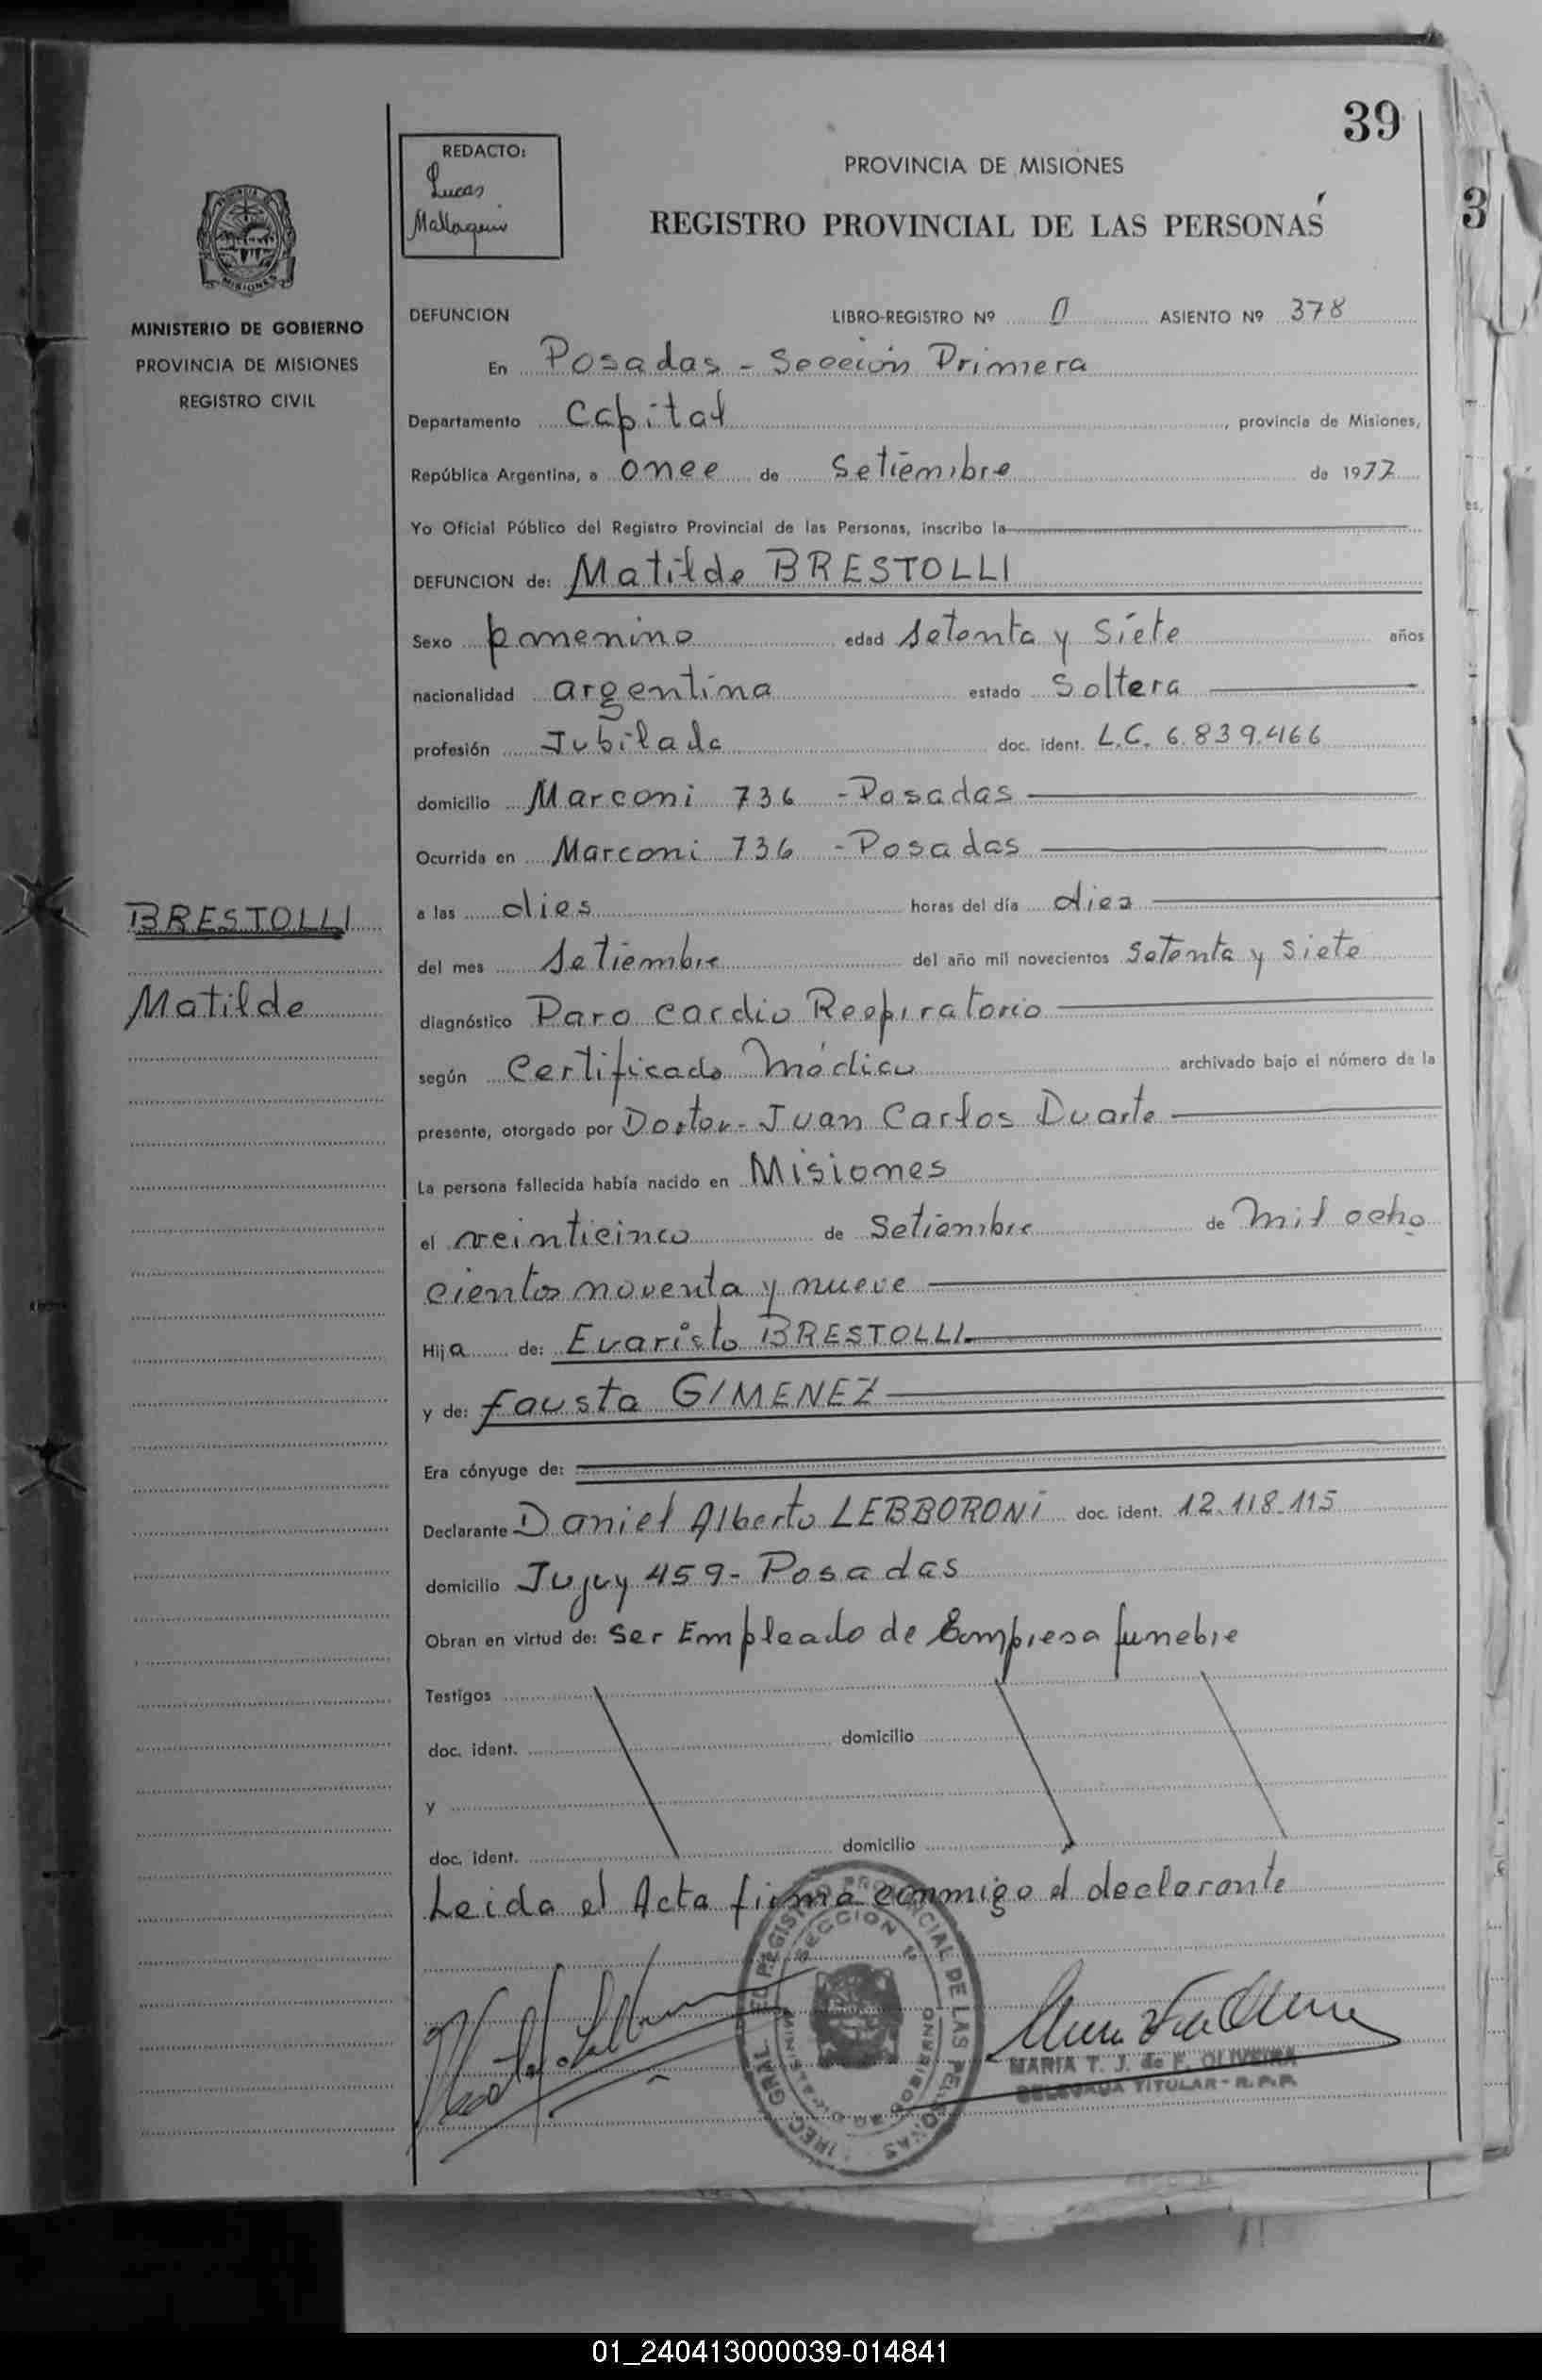 39
REDACTO:
Lucas
PROVINCIA DE MISIONES
REGISTRO PROVINCIAL DE LAS PERSONAS
3
MINISTERIO DE GOBIERNO
PROVINCIA DE MISIONES
REGISTRO CIVIL
DEFUNCION LIBRO-REGISTRO Nº ASIENTO Nº 378
En Posadas - Sección Primera
Departamento Capital, provincia de Misiones,
República Argentina, a once de Setiembre de 1977
Yo Oficial Público del Registro Provincial de las Personas, inscribo la
DEFUNCION de: Matilde BRESTOLLI
Sexo femenino edad setenta y siete años
nacionalidad argentina estado Soltera
profesión Jubilada doc. ident. L.C. 6.839.466
domicilio Marconi 736 - Posadas
Ocurrida en Marconi 736 - Posadas
BRESTOLLI
Matilde
a las dies horas del día diez
del mes Setiembre del año mil novecientos Setenta y siete
diagnóstico Paro Cardio Respiratorio
según Certificado Médico archivado bajo el número de la
presente, otorgado por Doctor - Juan Carlos Duarte
La persona fallecida había nacido en Misiones
el veinticinco de Setiembre de mil ocho
cientos noventa y nueve
Hija de: Evaristo BRESTOLLI
y de: Fausta GIMENEZ
Era cónyuge de:
Declarante Daniel Alberto LEBBORONI doc. ident. 12.118.115
domicilio Jujuy 459 - Posadas
Obran en virtud de: Ser Empleado de Empresa funebre
Testigos
doc. ident. domicilio
y
doc. ident. domicilio
Leida el Acta firma conmigo el declarante
REGISTRO PROVINCIAL DE LAS PERSONAS
SECCION 1ª
MARIA T. J. de F. OLIVEIRA
DELEGADA TITULAR - R.P.P.
01_240413000039-014841